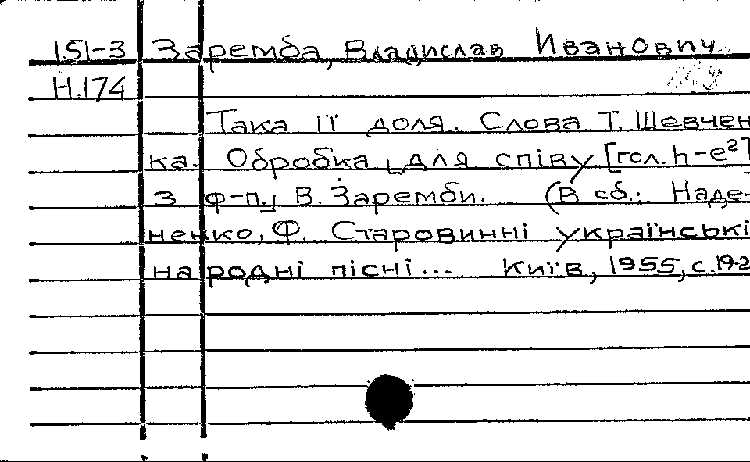 151-3 Заремба, Владислав Иванович
Н.174
Така її доля. Слова Т. Шевчен
ка. Обробка для співу [гол. h-e²]
з ф-п. В. Заремби. (В сб.: Наде-
ненко, Ф. Старовинні українські
народні пісні... Київ, 1955, с. 19-2